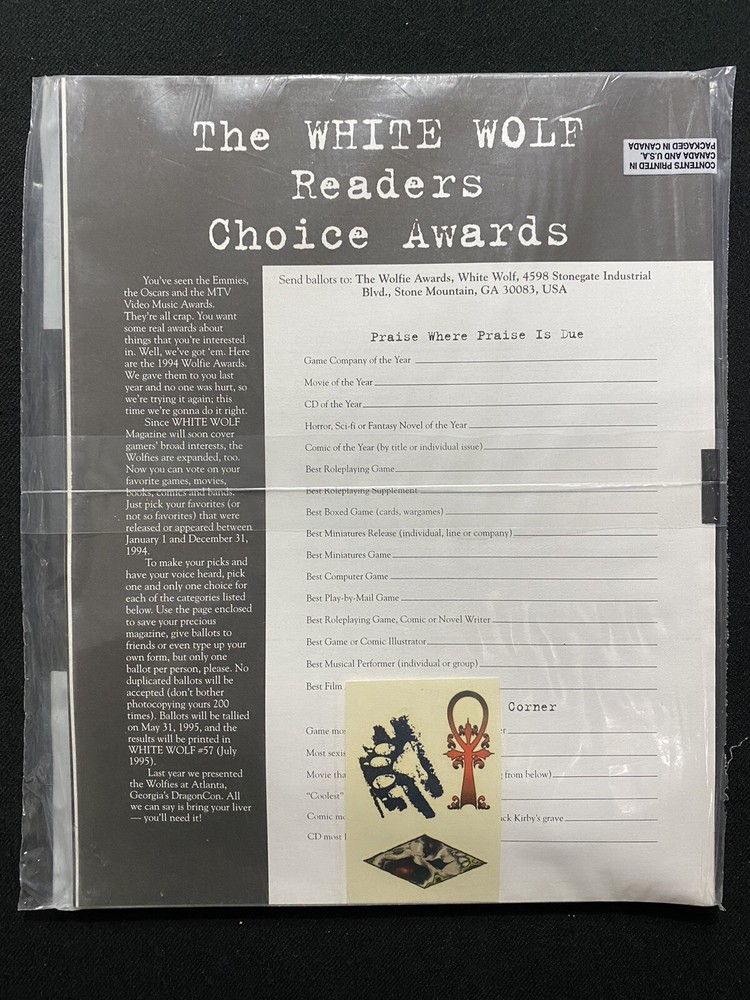 The WHITE WOLF
Readers
Choice Awards
CONTENTS PRINTED IN
CANADA AND U.S.A.
PACKAGED IN CANADA
You've seen the Emmies,
the Oscars and the MTV
Video Music Awards.
They're all crap. You want
some real awards about
things that you're interested
in. Well, we've got 'em. Here
are the 1994 Wolfie Awards.
We gave them to you last
year and no one was hurt, so
we're trying it again; this
time we're gonna do it right.
Since WHITE WOLF
Magazine will soon cover
gamers' broad interests, the
Wolfies are expanded, too.
Now you can vote on your
favorite games, movies,
books, comics and bands.
Just pick your favorites (or
not so favorites) that were
released or appeared between
January 1 and December 31,
1994.
To make your picks and
have your voice heard, pick
one and only one choice for
each of the categories listed
below. Use the page enclosed
to save your precious
magazine, give ballots to
friends or even type up your
own form, but only one
ballot per person, please. No
duplicated ballots will be
accepted (don't bother
photocopying yours 200
times). Ballots will be tallied
on May 31, 1995, and the
results will be printed in
WHITE WOLF #57 (July
1995).
Last year we presented
the Wolfies at Atlanta,
Georgia's DragonCon. All
we can say is bring your liver
— you'll need it!
Send ballots to: The Wolfie Awards, White Wolf, 4598 Stonegate Industrial
Blvd., Stone Mountain, GA 30083, USA
Praise Where Praise Is Due
Game Company of the Year
Movie of the Year
CD of the Year
Horror, Sci-fi or Fantasy Novel of the Year
Comic of the Year (by title or individual issue)
Best Roleplaying Game
Best Roleplaying Supplement
Best Boxed Game (cards, wargames)
Best Miniatures Release (individual, line or company)
Best Miniatures Game
Best Computer Game
Best Play-by-Mail Game
Best Roleplaying Game, Comic or Novel Writer
Best Game or Comic Illustrator
Best Musical Performer (individual or group)
Best Film
Corner
Game mo
Most sexi
Movie tha from below)
"Coolest"
Comic mo ck Kirby's grave
CD most